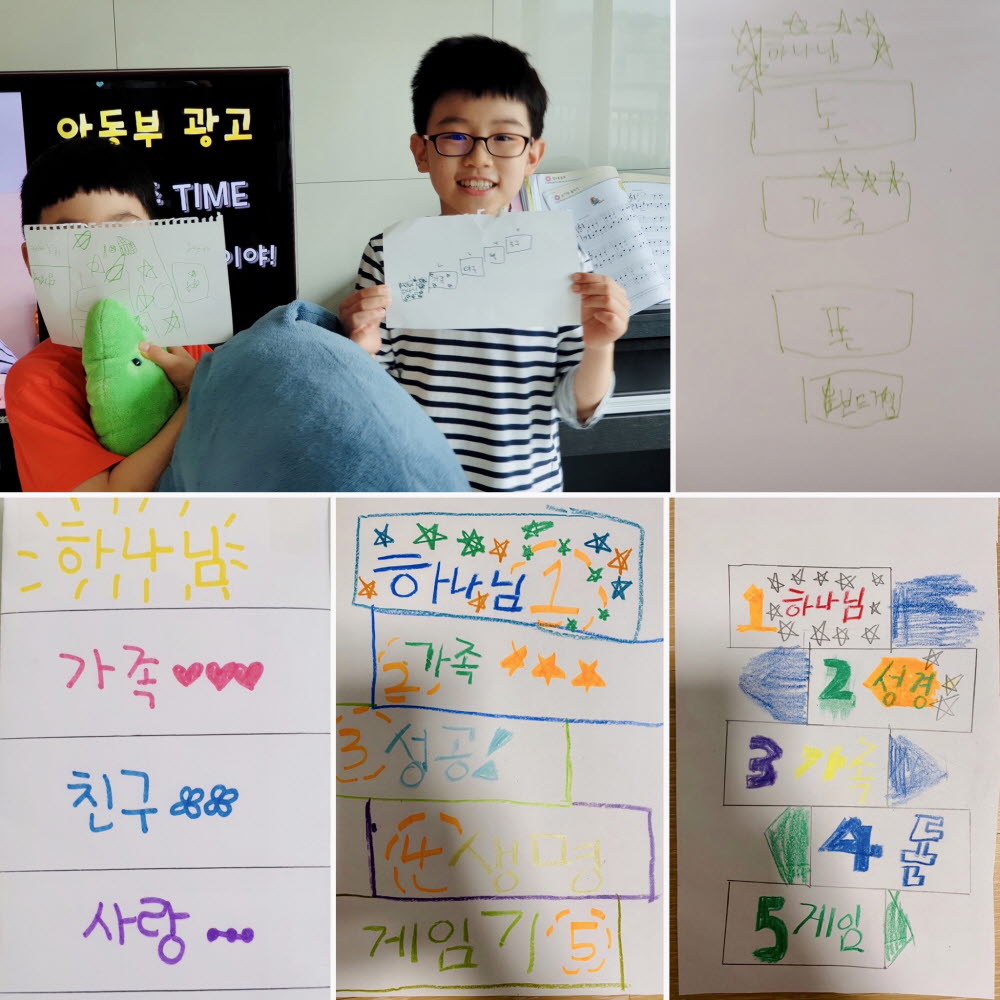 아동부 광고
TIME
이야!
가족
하나님
돈
가족
폰
하나님
가족
친구
사랑
하나님 1
2 가족
3 성공!
4 생명
게임기 5
1 하나님
2 성경
3 가족
4
5 게임